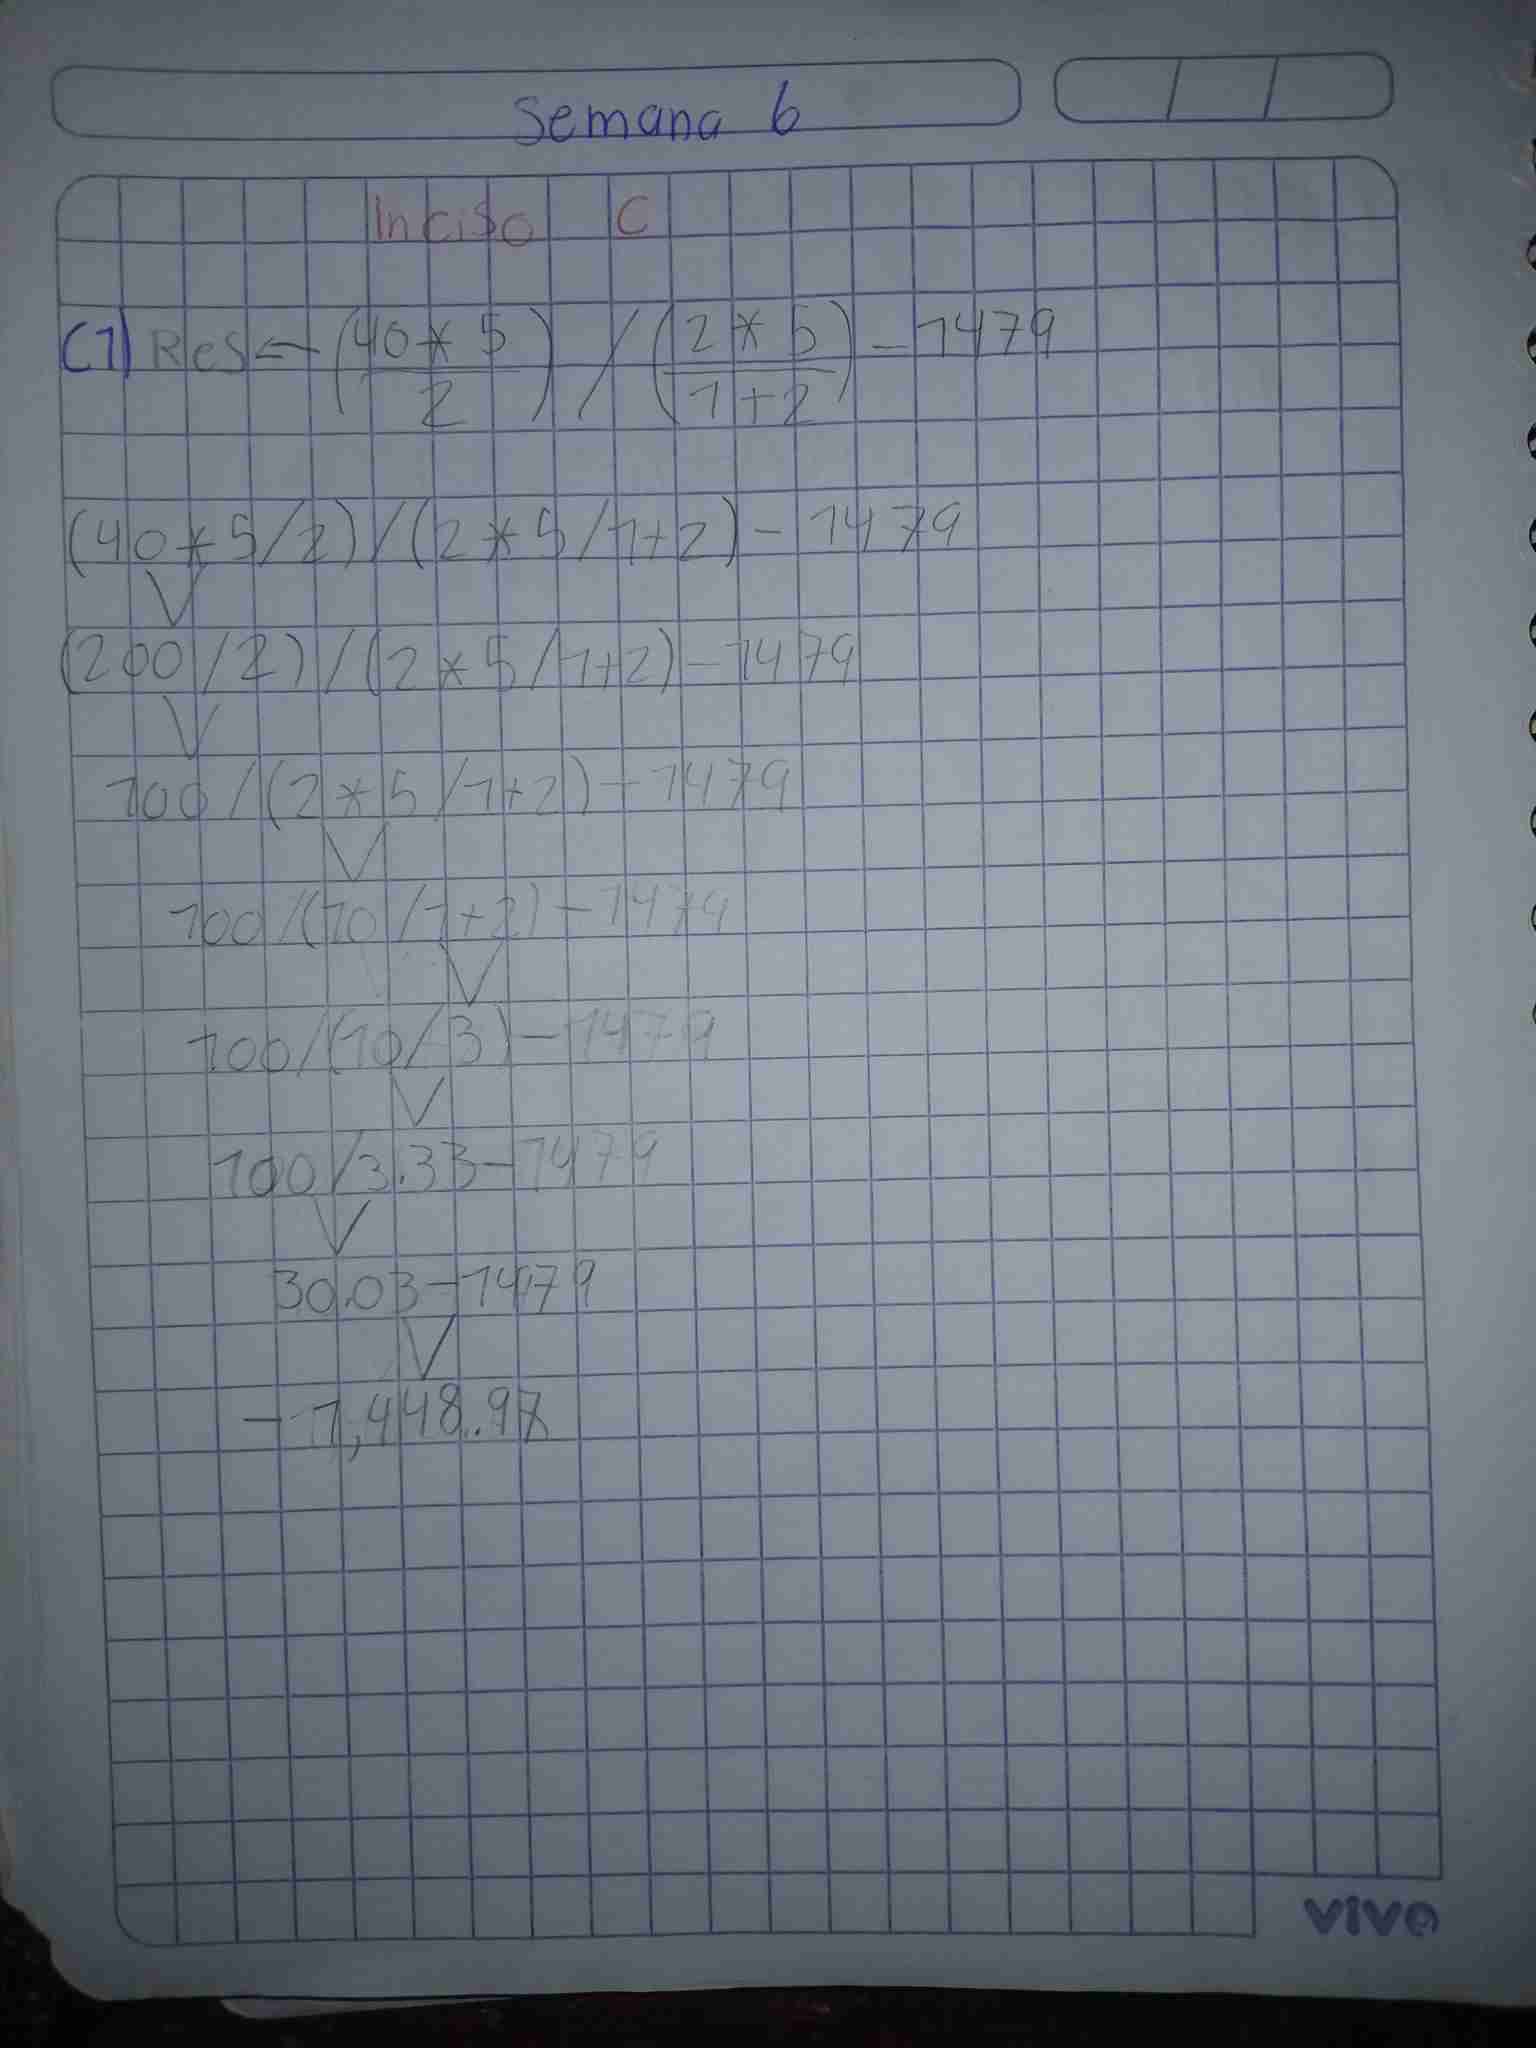 Semana 6
Inciso C
C1) Res ← (40 * 5 / 2) / (2 * 5 / 1 + 2) - 1479
(40 * 5 / 2) / (2 * 5 / 1 + 2) - 1479
(200 / 2) / (2 * 5 / 1 + 2) - 1479
100 / (2 * 5 / 1 + 2) - 1479
100 / (10 / 1 + 2) - 1479
100 / (10 / 3) - 1479
100 / 3.33 - 1479
30.03 - 1479
- 1,448.97
vive